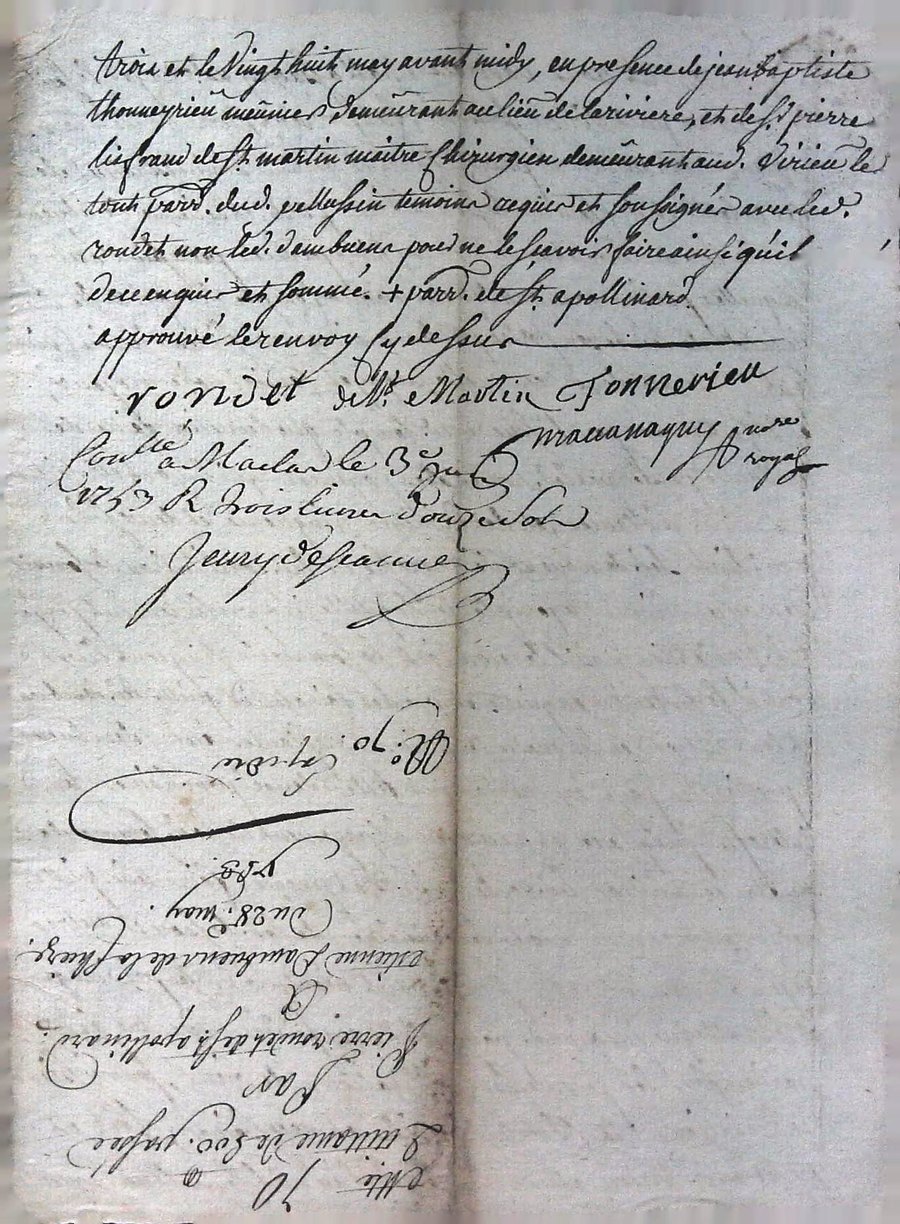 trois et le vingt huit may avant midy, en presence de jean baptiste
thonneyrieu meunier demeurant au lieu de la riviere, et de sr. pierre
de st. martin maitre chirurgien demeurant aud. virieu le
tout parr. dud. pellussin temoins requis et soussignés avec led.
rondet non led. dambuens pour ne le scavoir faire ainsi qu'il
de ce enquis et sommé. + parr. de st. apollinard
approuvé le renvoy cy dessus
rondet de st. Martin Tonnerieu
nore
royal
Conllé a Maclas le 3e
1753 R trois livres douze sols
No. 70.
Du 28e. may.
1753.
estienne Dambuens de la
A
Pierre rondet de st. apollinard.
Par
Quittance de 800. passée
70